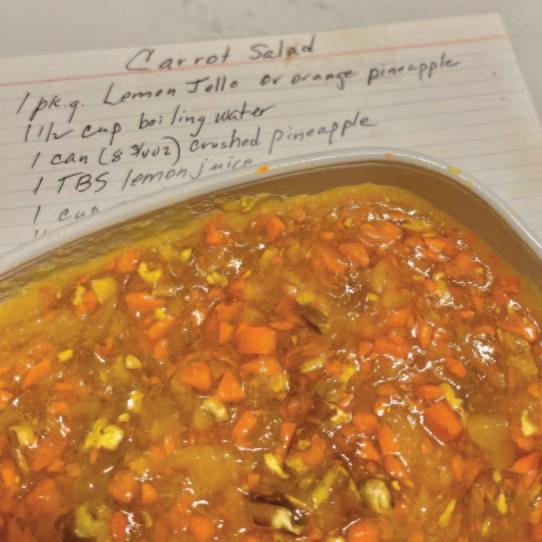 Carrot Salad
1 pkg. Lemon Jello or orange pineapple
1 1/2 cup boiling water
1 can (8 3/4 oz) crushed pineapple
1 TBS lemon juice
1 cup